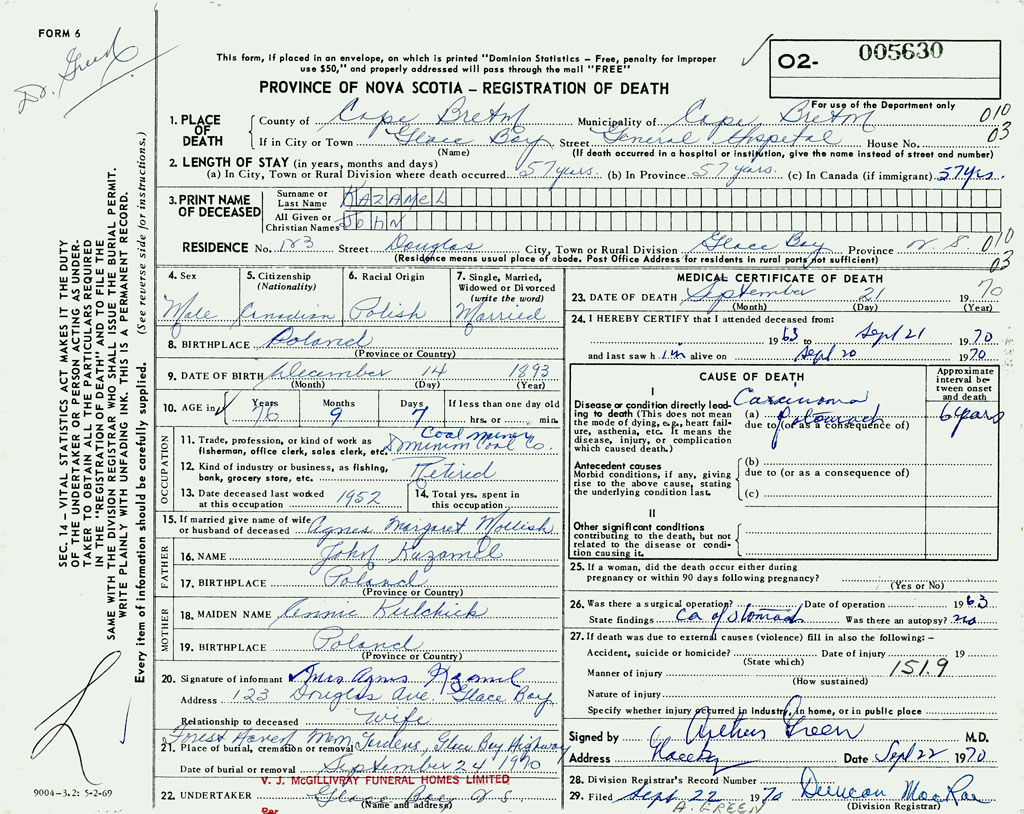 FORM 6
Dr. Green
This form, if placed in an envelope, on which is printed "Dominion Statistics – Free, penalty for improper
use $50," and properly addressed will pass through the mail "FREE"
O2- 005630
PROVINCE OF NOVA SCOTIA – REGISTRATION OF DEATH
For use of the Department only
1. PLACE OF DEATH
County of Cape Breton Municipality of Cape Breton 010
If in City or Town Glace Bay Street General Hospital House No. 03
(Name) (If death occurred in a hospital or institution, give the name instead of street and number)
2. LENGTH OF STAY (in years, months and days)
(a) In City, Town or Rural Division where death occurred 57 years. (b) In Province 57 years. (c) In Canada (if immigrant) 57 yrs.
3. PRINT NAME OF DECEASED
Surname or Last Name KAZAMEL
All Given or Christian Names JOHN
RESIDENCE No. 123 Street Douglas City, Town or Rural Division Glace Bay Province N. S. 010
(Residence means usual place of abode. Post Office Address for residents in rural parts not sufficient) 03
4. Sex Male
5. Citizenship (Nationality) Canadian
6. Racial Origin Polish
7. Single, Married, Widowed or Divorced (write the word) Married
8. BIRTHPLACE Poland
(Province or Country)
9. DATE OF BIRTH December 14 1893
(Month) (Day) (Year)
10. AGE in Years 76 Months 9 Days 7 If less than one day old hrs. or min.
OCCUPATION
11. Trade, profession, or kind of work as fisherman, office clerk, sales clerk, etc. Coal miner
Dominion Coal Co.
12. Kind of industry or business, as fishing, bank, grocery store, etc. Retired
13. Date deceased last worked at this occupation 1952
14. Total yrs. spent in this occupation
15. If married give name of wife or husband of deceased Agnes Margaret Mollish
FATHER
16. NAME John Kazamel
17. BIRTHPLACE Poland
(Province or Country)
MOTHER
18. MAIDEN NAME Annie Kulchick
19. BIRTHPLACE Poland
(Province or Country)
20. Signature of informant Mrs Agnes Kazamel
Address 123 Douglas Ave Glace Bay
Relationship to deceased Wife
Forest Haven Mem Gardens, Glace Bay Highway
21. Place of burial, cremation or removal
Date of burial or removal September 24 1970
V. J. McGILLIVRAY FUNERAL HOMES LIMITED
22. UNDERTAKER Glace Bay N. S.
(Name and address)
Per
MEDICAL CERTIFICATE OF DEATH
23. DATE OF DEATH September 21 1970
(Month) (Day) (Year)
24. I HEREBY CERTIFY that I attended deceased from:
1963 to Sept 21 1970
and last saw him alive on Sept 20 1970
CAUSE OF DEATH
Approximate interval between onset and death
I
Disease or condition directly leading to death (This does not mean the mode of dying, e.g., heart failure, asthenia, etc. It means the disease, injury, or complication which caused death.)
(a) Carcinoma of stomach 6 years
due to (or as a consequence of)
Antecedent causes
Morbid conditions, if any, giving rise to the above cause, stating the underlying condition last.
(b)
due to (or as a consequence of)
(c)
II
Other significant conditions
contributing to the death, but not related to the disease or condition causing it.
25. If a woman, did the death occur either during
pregnancy or within 90 days following pregnancy?
(Yes or No)
26. Was there a surgical operation? Date of operation 1963
State findings Ca of stomach Was there an autopsy? no
27. If death was due to external causes (violence) fill in also the following: –
Accident, suicide or homicide? Date of injury 19
(State which)
Manner of injury 151.9
(How sustained)
Nature of injury
Specify whether injury occurred in industry, in home, or in public place
Signed by Arthur Green M.D.
Address Date Sept 22 1970
28. Division Registrar's Record Number
29. Filed Sept. 22 1970 Duncan MacRae
(Division Registrar)
A. GREEN
SEC. 14 – VITAL STATISTICS ACT MAKES IT THE DUTY
OF THE UNDERTAKER OR PERSON ACTING AS UNDER-
TAKER TO OBTAIN ALL THE PARTICULARS REQUIRED
IN THE "REGISTRATION OF DEATH" AND TO FILE THE
SAME WITH THE DIVISION REGISTRAR WHO SHALL ISSUE THE BURIAL PERMIT.
WRITE PLAINLY WITH UNFADING INK. THIS IS A PERMANENT RECORD.
Every item of information should be carefully supplied. (See reverse side for instructions.)
9004-3.2: 5-2-69